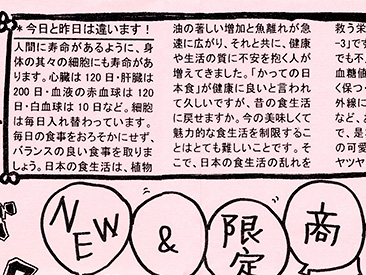 ＊今日と昨日は違います！
人間に寿命があるように、身
体の其々の細胞にも寿命があ
ります。心臓は 120 日・肝臓は
200 日・血液の赤血球は 120
日・白血球は 10 日など。細胞
は毎日入れ替わっています。
毎日の食事をおろそかにせず、
バランスの良い食事を取りま
しょう。日本の食生活は、植物
油の著しい増加と魚離れが急
速に広がり、それと共に、健康
や生活の質に不安を抱く人が
増えてきました。「かっての日
本食」が健康に良いと言われ
て久しいですが、昔の食生活
に戻せますか。今の美味しくて
魅力的な食生活を制限するこ
とはとても難しいことです。そ
こで、日本の食生活の乱れを
救う栄
-3」です
でも不
血糖値
く保つ・
外線に
など、あ
で、是
の可愛
ヤツヤ
NEW
&
限定
商